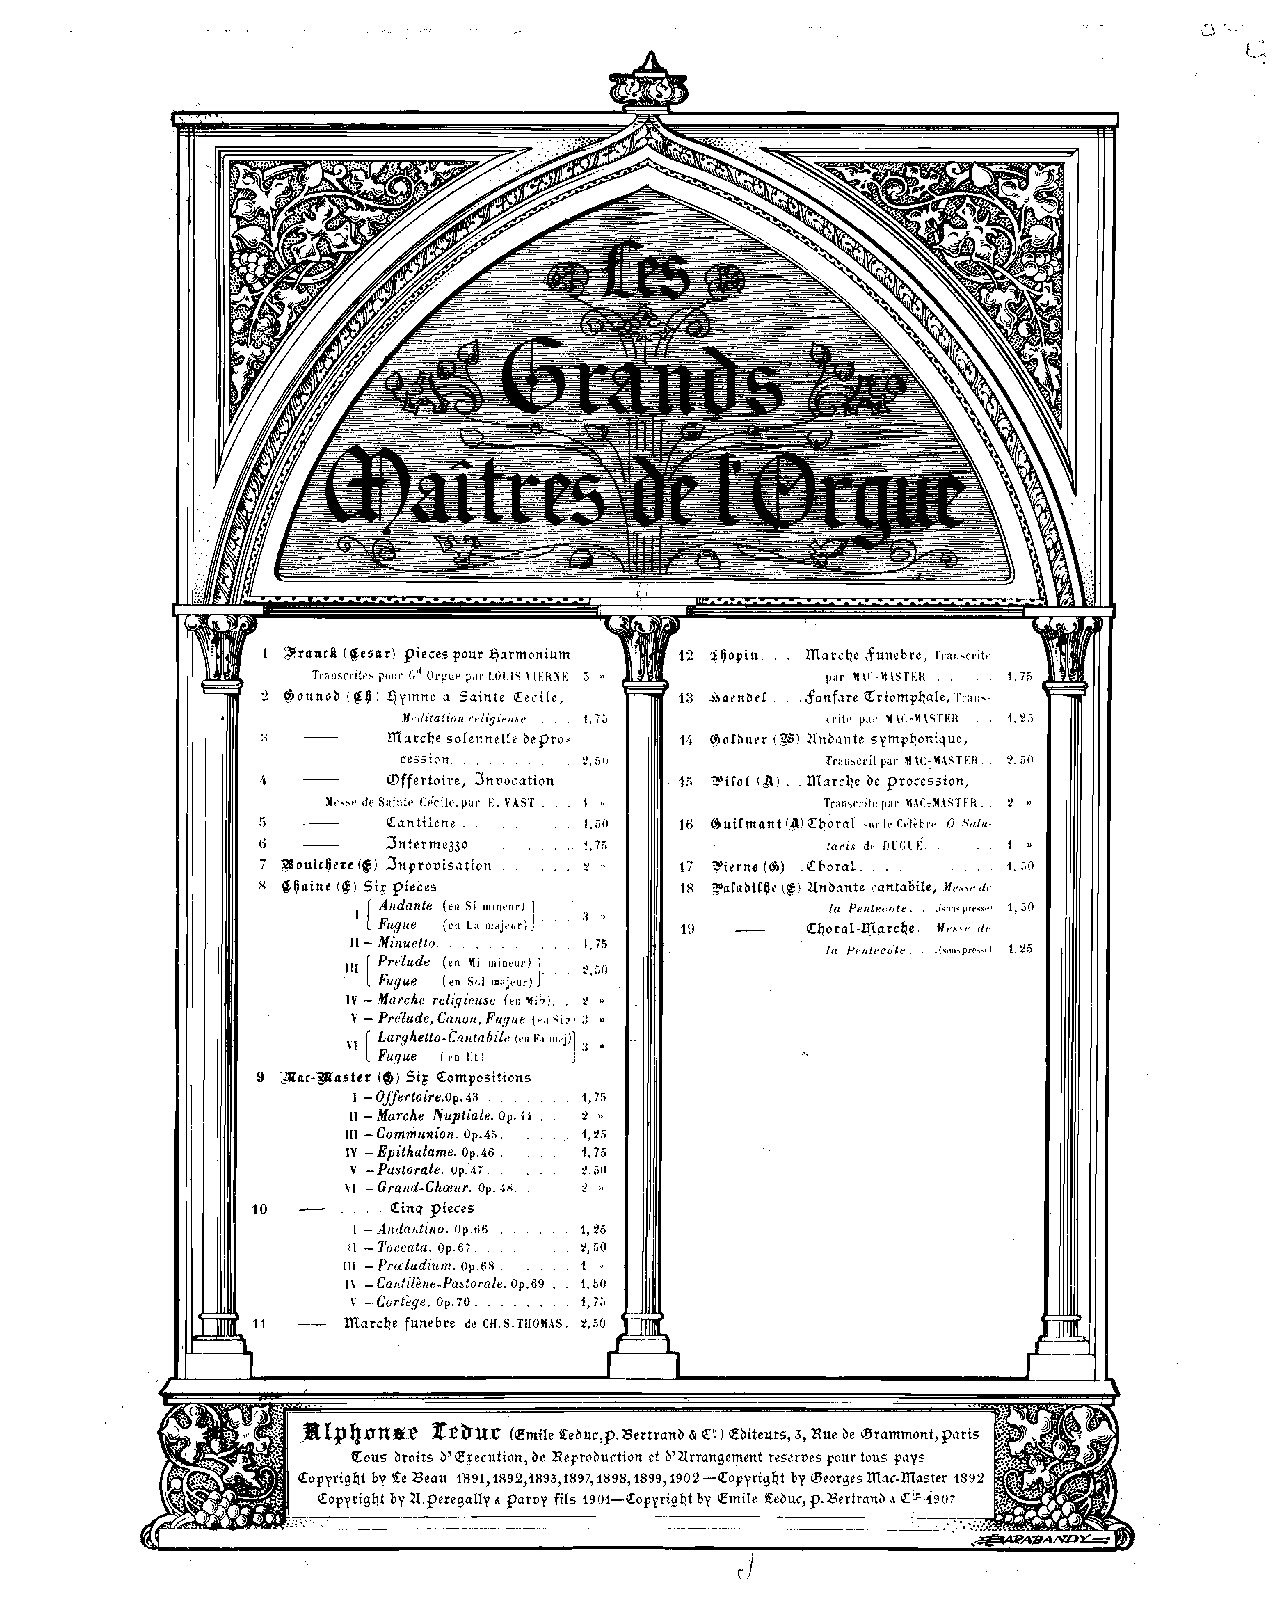 Les
Grands
Maîtres de l'Orgue
1 Franck (Cesar) Pieces pour Harmonium
Transcrites pour Gd Orgue par LOUIS VIERNE 5 »
2 Gounod (Ch) Hymne a Sainte Cecile,
Meditation religieuse . . . 1,75
3 —— Marche solennelle de pro-
cession. . . . . . . . 2,50
4 —— Offertoire, Invocation
Messe de Sainte Cécile. par E. VAST . . . 1 »
5 —— Cantilene . . . . . . 1,50
6 —— Intermezzo . . . . . 1,75
7 Boulchere (E) Inprovisation . . . . . 2 »
8 Chaine (E) Six Pieces
I Andante (en Si mineur)
Fugue (en La majeur) . . . 3 »
II – Minuetto. . . . . . . . . . 1,75
III Prelude (en Mi mineur)
Fugue (en Sol majeur) . . . 2,50
IV – Marche religieuse (en Mib). . 2 »
V – Prélude, Canon, Fugue (en Sib) 3 »
VI Larghetto-Cantabile (en Fa maj)
Fugue (en Ut) 3 »
9 Mac-Master (G) Six Compositions
I – Offertoire. Op. 43 . . . . . . . 1,75
II – Marche Nuptiale. Op. 44 . . 2 »
III – Communion. Op. 45. . . . . 1,25
IV – Epithalame. Op. 46 . . . . . 1,75
V – Pastorale. Op. 47 . . . . . . 2.50
VI – Grand-Chœur. Op. 48. . 2 »
10 —— . . . . Cinq Pieces
I – Andantino. Op. 66 . . . . . . 1,25
II – Toccata. Op. 67 . . . . . . . 2,50
III – Præludium. Op. 68 . . . . . 1 »
IV – Cantilène-Pastorale. Op. 69 . . 1,50
V – Cortège. Op. 70 . . . . . . . 1,75
11 —— Marche funebre de CH. S. THOMAS. 2,50
12 Chopin. . . Marche Funebre, Transcrite
par MAC-MASTER . . . . 1,75
13 Haendel . . . Fanfare Triomphale, Trans-
crite par MAC-MASTER . . 1,25
14 Goldner (W) Andante symphonique,
Transcrit par MAC-MASTER . . 2.50
15 Pilot (A) . . Marche de Procession,
Transcrite par MAC-MASTER . . 2 »
16 Guilmant (A) Choral sur le Célèbre O Salu-
taris de DUGUÉ . . . 1 »
17 Pierne (G) . Choral. . . . . . . 1,50
18 Paladilhe (E) Andante cantabile, Messe de
la Pentecote. . . (sous presse) 1,50
19 —— Choral-Marche. Messe de
la Pentecôte. . . (sous presse) 1.25
Alphonse Leduc (Emile Leduc, P. Bertrand & Cie) Editeurs, 3, Rue de Grammont, Paris
Tous droits d'Execution, de Reproduction et d'Arrangement reserves pour tous pays
Copyright by Le Beau 1891, 1892, 1893, 1897, 1898, 1899, 1902 — Copyright by Georges Mac-Master 1892
Copyright by A. Peregally & Parvy fils 1901 — Copyright by Emile Leduc, P. Bertrand & Cie 1907
BARABANDY